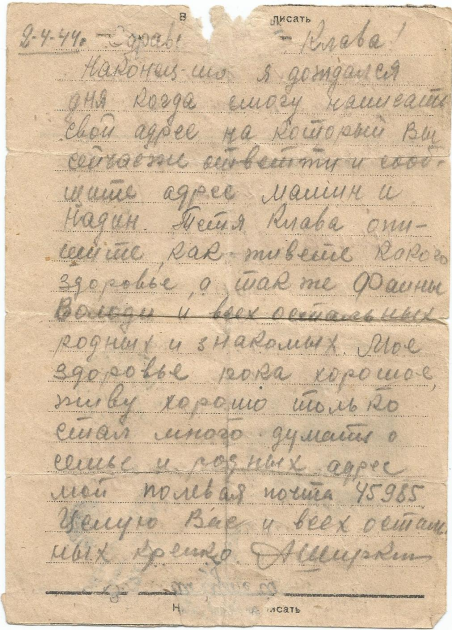 В писать
2-4-44г Здрав Клава!
Наконец-то я дождался
дня когда смогу написать
свой адрес на который Вы
сейчасже ответьти и сооб-
щите адрес машин и
Надин. Тетя Клава опи-
шите, как живете какого
здоровье, а так же Фаины
Володи и всех остальных
родных и знакомых. Мое
здоровье пока хорошое,
живу хорошо только
стал много думать о
семье и родных адрес
мой полевая почта 45985.
Целую Вас и всех осталь
ных крепко
Н исать